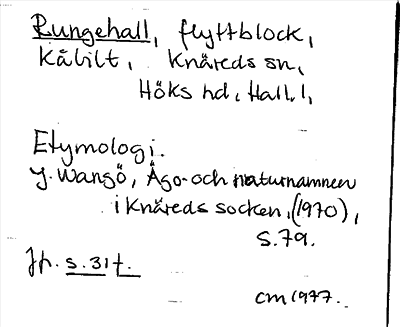 Rungehall, flyttblock,
Kåbilt, Knäreds sn,
Höks hd, Hall. l,
Etymologi.
J. Wangö, Ägo- och naturnamnen
i Knäreds socken, (1970),
s. 79.
Jfr. s. 31 f.
cm 1977.